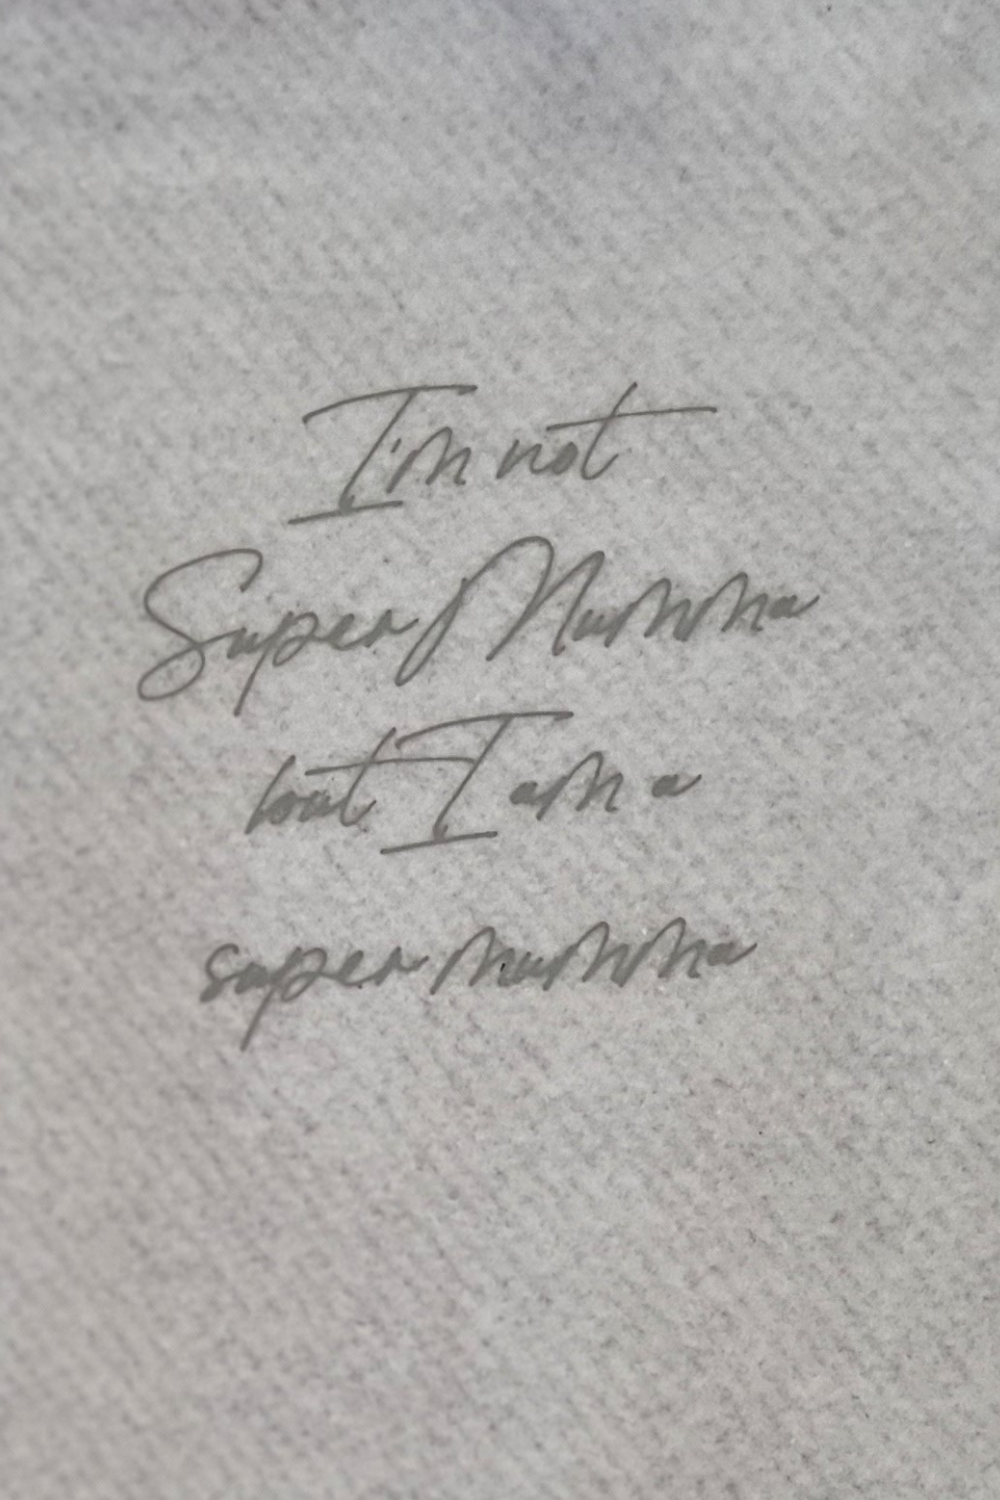 I'm not
Super Mumma
but I am a
super mumma